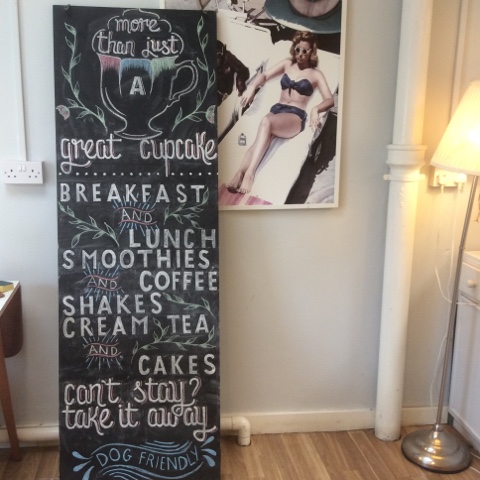 more
than just
A
great cupcake
BREAKFAST
AND
LUNCH
SMOOTHIES
AND COFFEE
SHAKES
CREAM TEA
AND
CAKES
can't stay?
take it away
DOG FRIENDLY